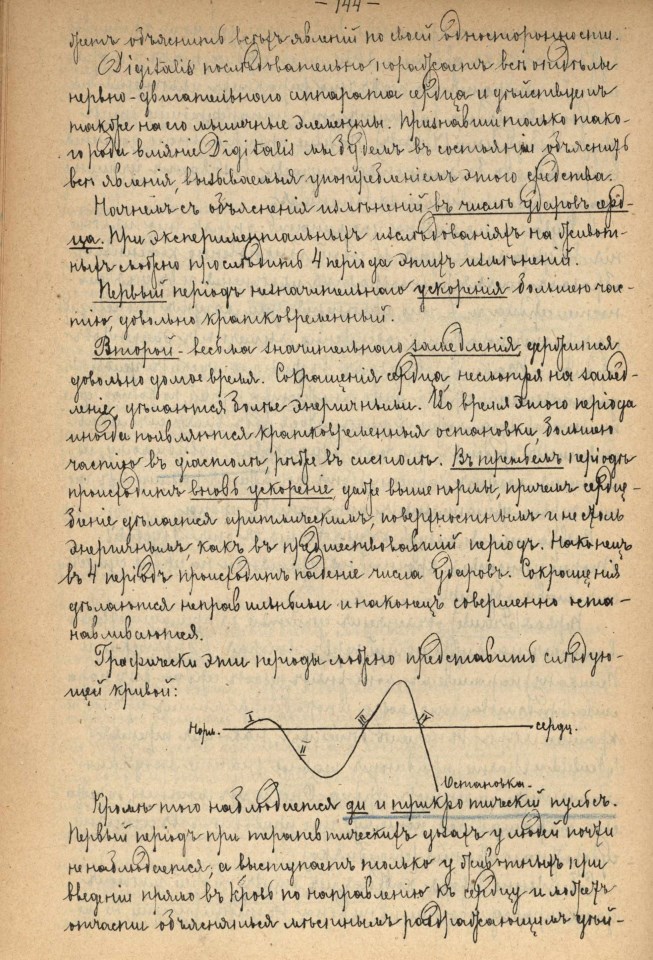 — 144 —
жетъ объяснить всѣхъ явленій по своей односторонности.
Digitalis послѣдовательно поражаетъ всѣ отдѣлы
нервно-двигательнаго аппарата сердца и дѣйствуетъ
также на его мышечные элементы. Признавши только тако-
го рода вліяніе Digitalis мы будемъ въ состояніи объяснить
всѣ явленія, вызываемыя употребленіемъ этого средства.
Начнемъ съ объясненія измѣненій въ числѣ ударовъ серд-
ца. При экспериментальныхъ изслѣдованіяхъ на живот-
ныхъ можно прослѣдить 4 періода этихъ измѣненій.
Первый періодъ незначительнаго ускоренія большею час-
тію, довольно кратковременный.
Второй - весьма значительнаго замедленія, держится
довольно долгое время. Сокращенія сердца, несмотря на замед-
леніе, дѣлаются болѣе энергичными. Во время этого періода
иногда появляются кратковременныя остановки, большею
частію въ діастолѣ, рѣже въ систолѣ. Въ третьемъ періодѣ
происходитъ вновь ускореніе, даже выше нормы, причемъ сердце-
біеніе дѣлается аритмическимъ, поверхностнымъ и не столь
энергичнымъ, какъ въ предшествовавшій періодъ. Наконецъ
въ 4 періодѣ происходитъ паденіе числа ударовъ. Сокращенія
дѣлаются неправильными и наконецъ совершенно оста-
навливаются.
Графически эти періоды можно представить слѣдую-
щей кривой:
Норм. I II III IV сердц.
Остановка.
Кромѣ того наблюдается ди и трикротическій пульсъ.
Первый періодъ при терапевтическихъ дозахъ у людей почти
не наблюдается, а выступаетъ только у животныхъ при
введеніи прямо въ кровь по направленію къ сердцу и можетъ
отчасти объясняться мѣстнымъ раздражающимъ дѣй-